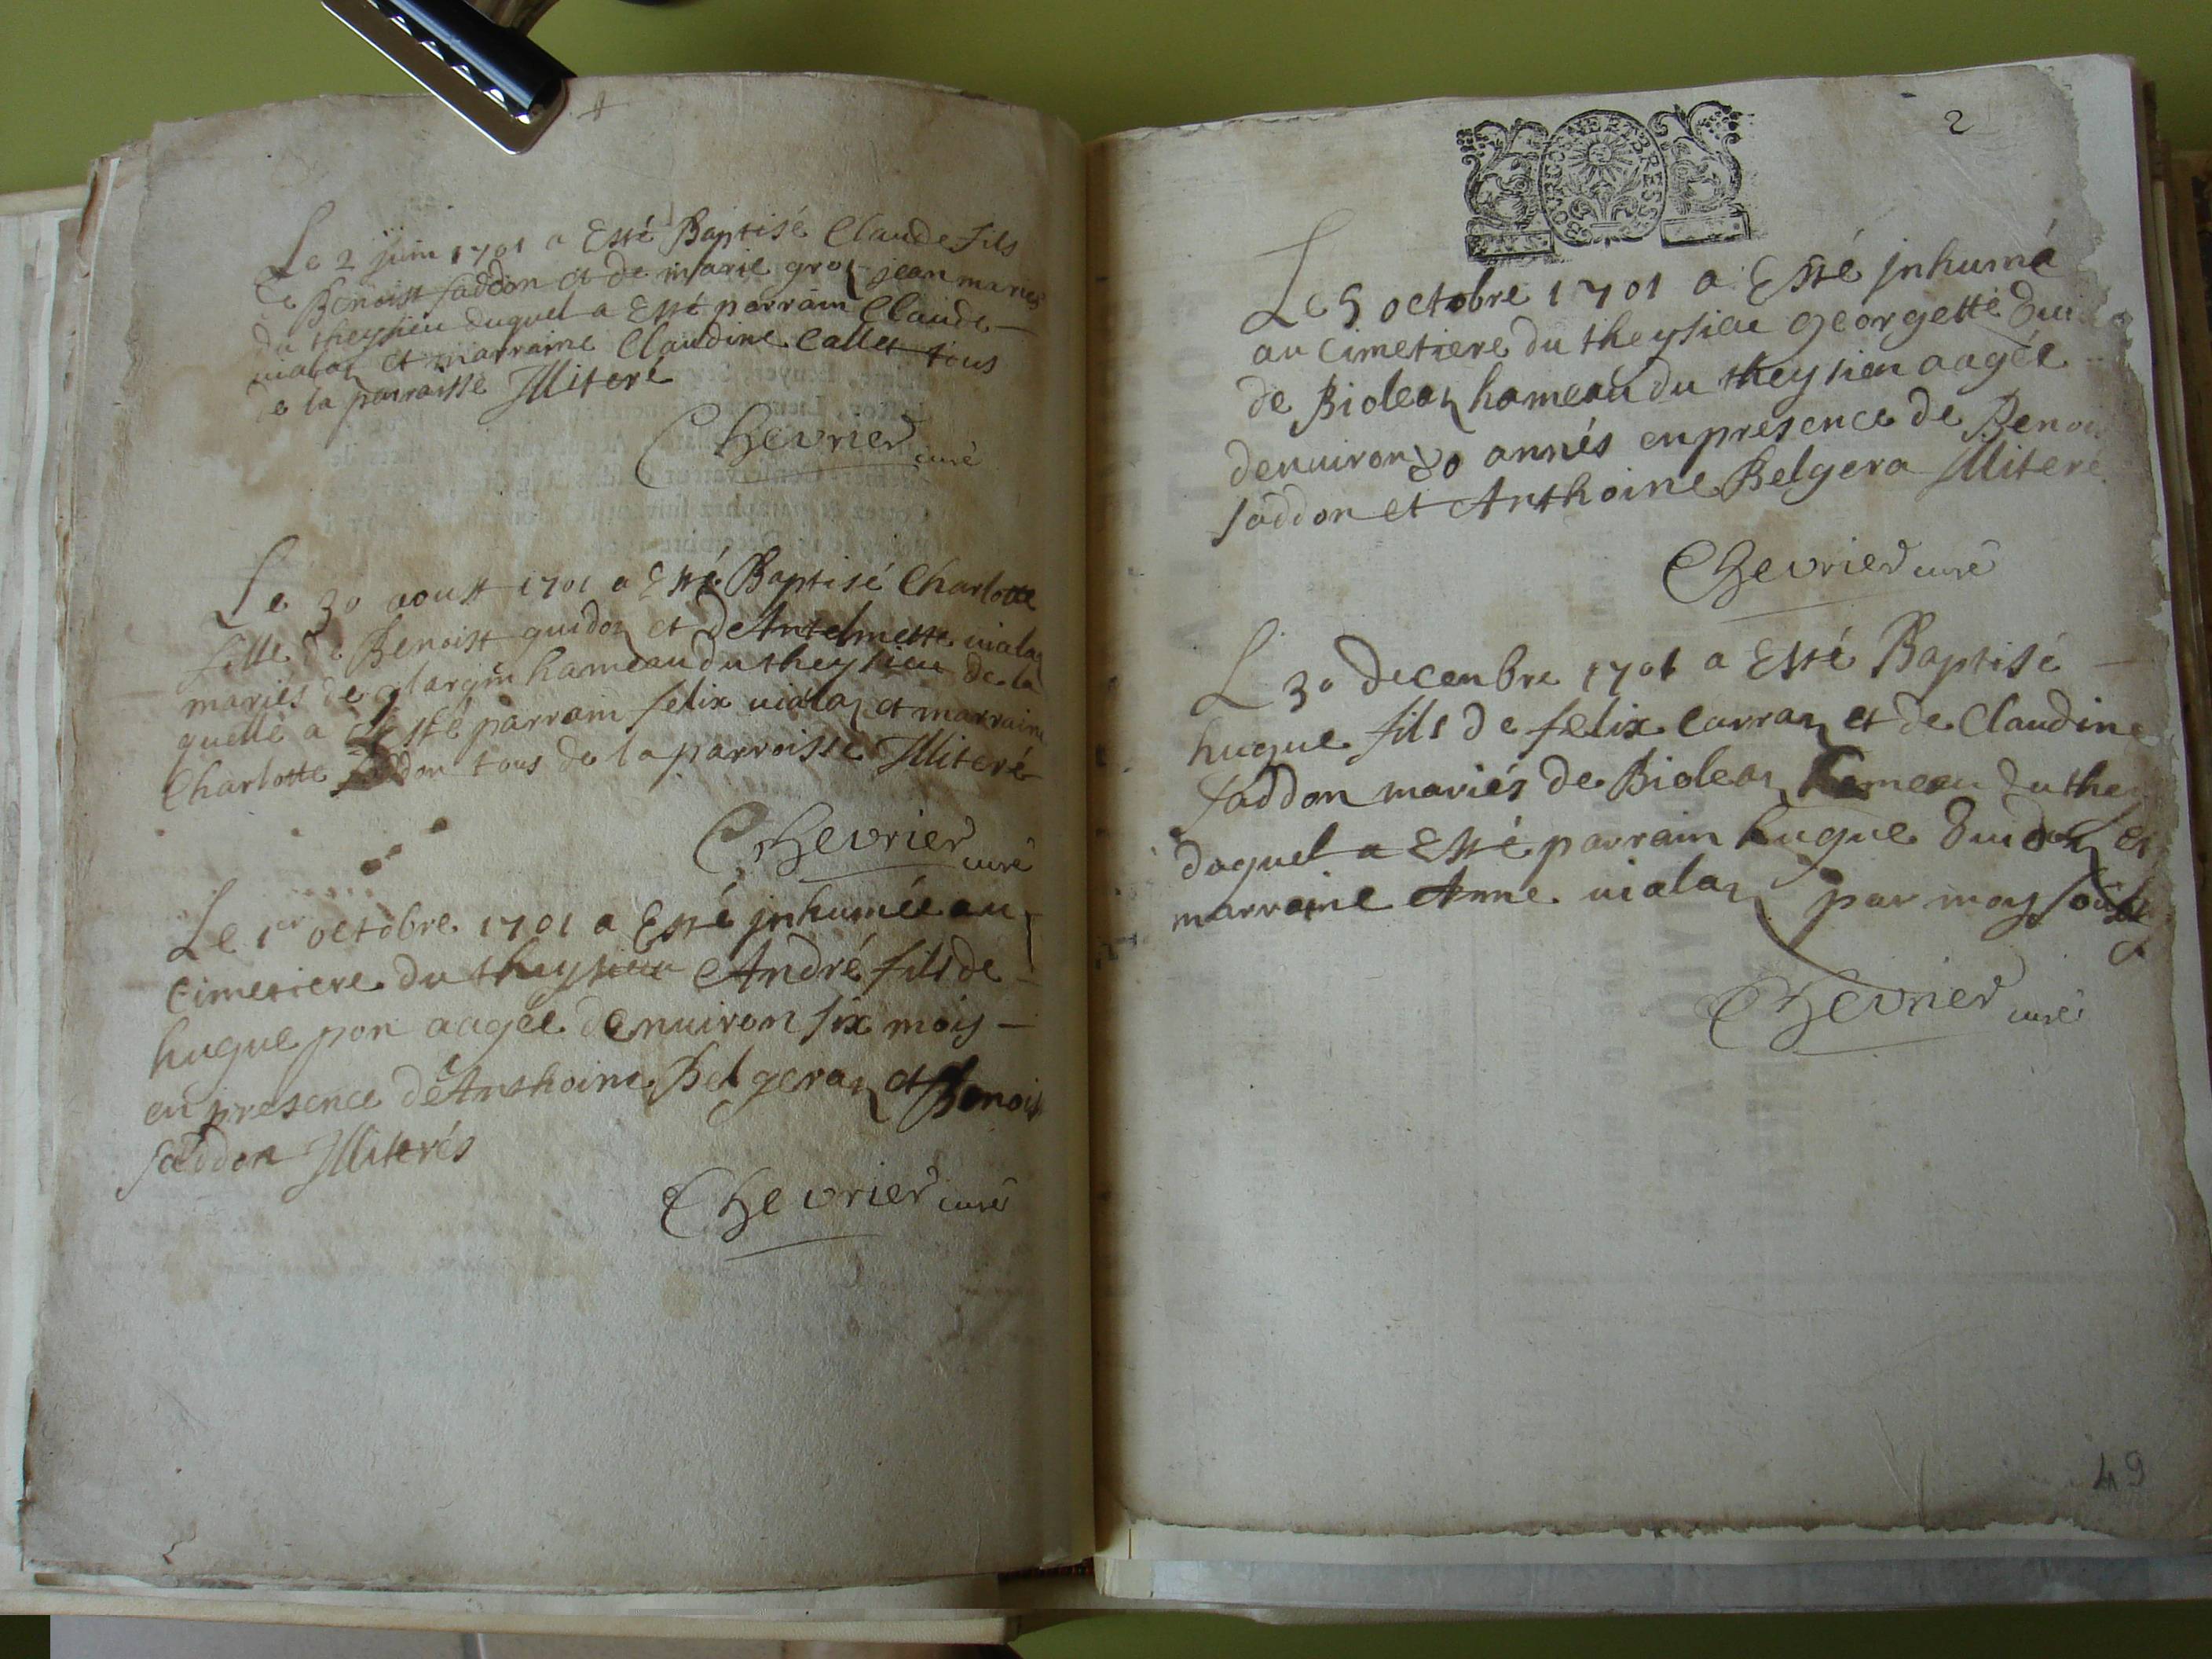 Le 2 juin 1701 a Esté Baptisé Claude fils
de Benoist saddon et de marie groz jean mariés
du theysieu duquel a Esté parrain Claude
vialaz et marraine Claudine Callet tous
de la parroisse Illiteré
Chevrier curé
Le 30 aoust 1701 a Esté Baptisé Charlotte
fille de Benoist guidoz et de Antelmette vialaz
mariés de hameau du theysieu de la
quelle a Esté parrain felix vialaz et marraine
Charlotte saddon tous de la parroisse Illiteré
Chevrier curé
Le 1er octobre 1701 a Esté jnhumée au
Cimetiere du theysieu André fils de
hugue pon aagée denuiron six mois
en presence de Anthoine Belgeraz et Benoist
saddon Illiterés
Chevrier curé
2
BOURGOGNE ET BRESSE
Le 5 octobre 1701 a Esté jnhumé
au Cimetiere du theysieu georgette
de Bioleaz hameau du theysieu aagée
denuiron 80 annés en presence de Benoist
saddon et Anthoine Belgera Illiteré
Chevrier curé
L 30 decenbre 1701 a Esté Baptisé
hugue fils de felix Carraz et de Claudine
saddon mariés de Bioleaz hameau du they
duquel a Esté parrain hugue et
marraine Anne vialaz par moy
Chevrier curé
49